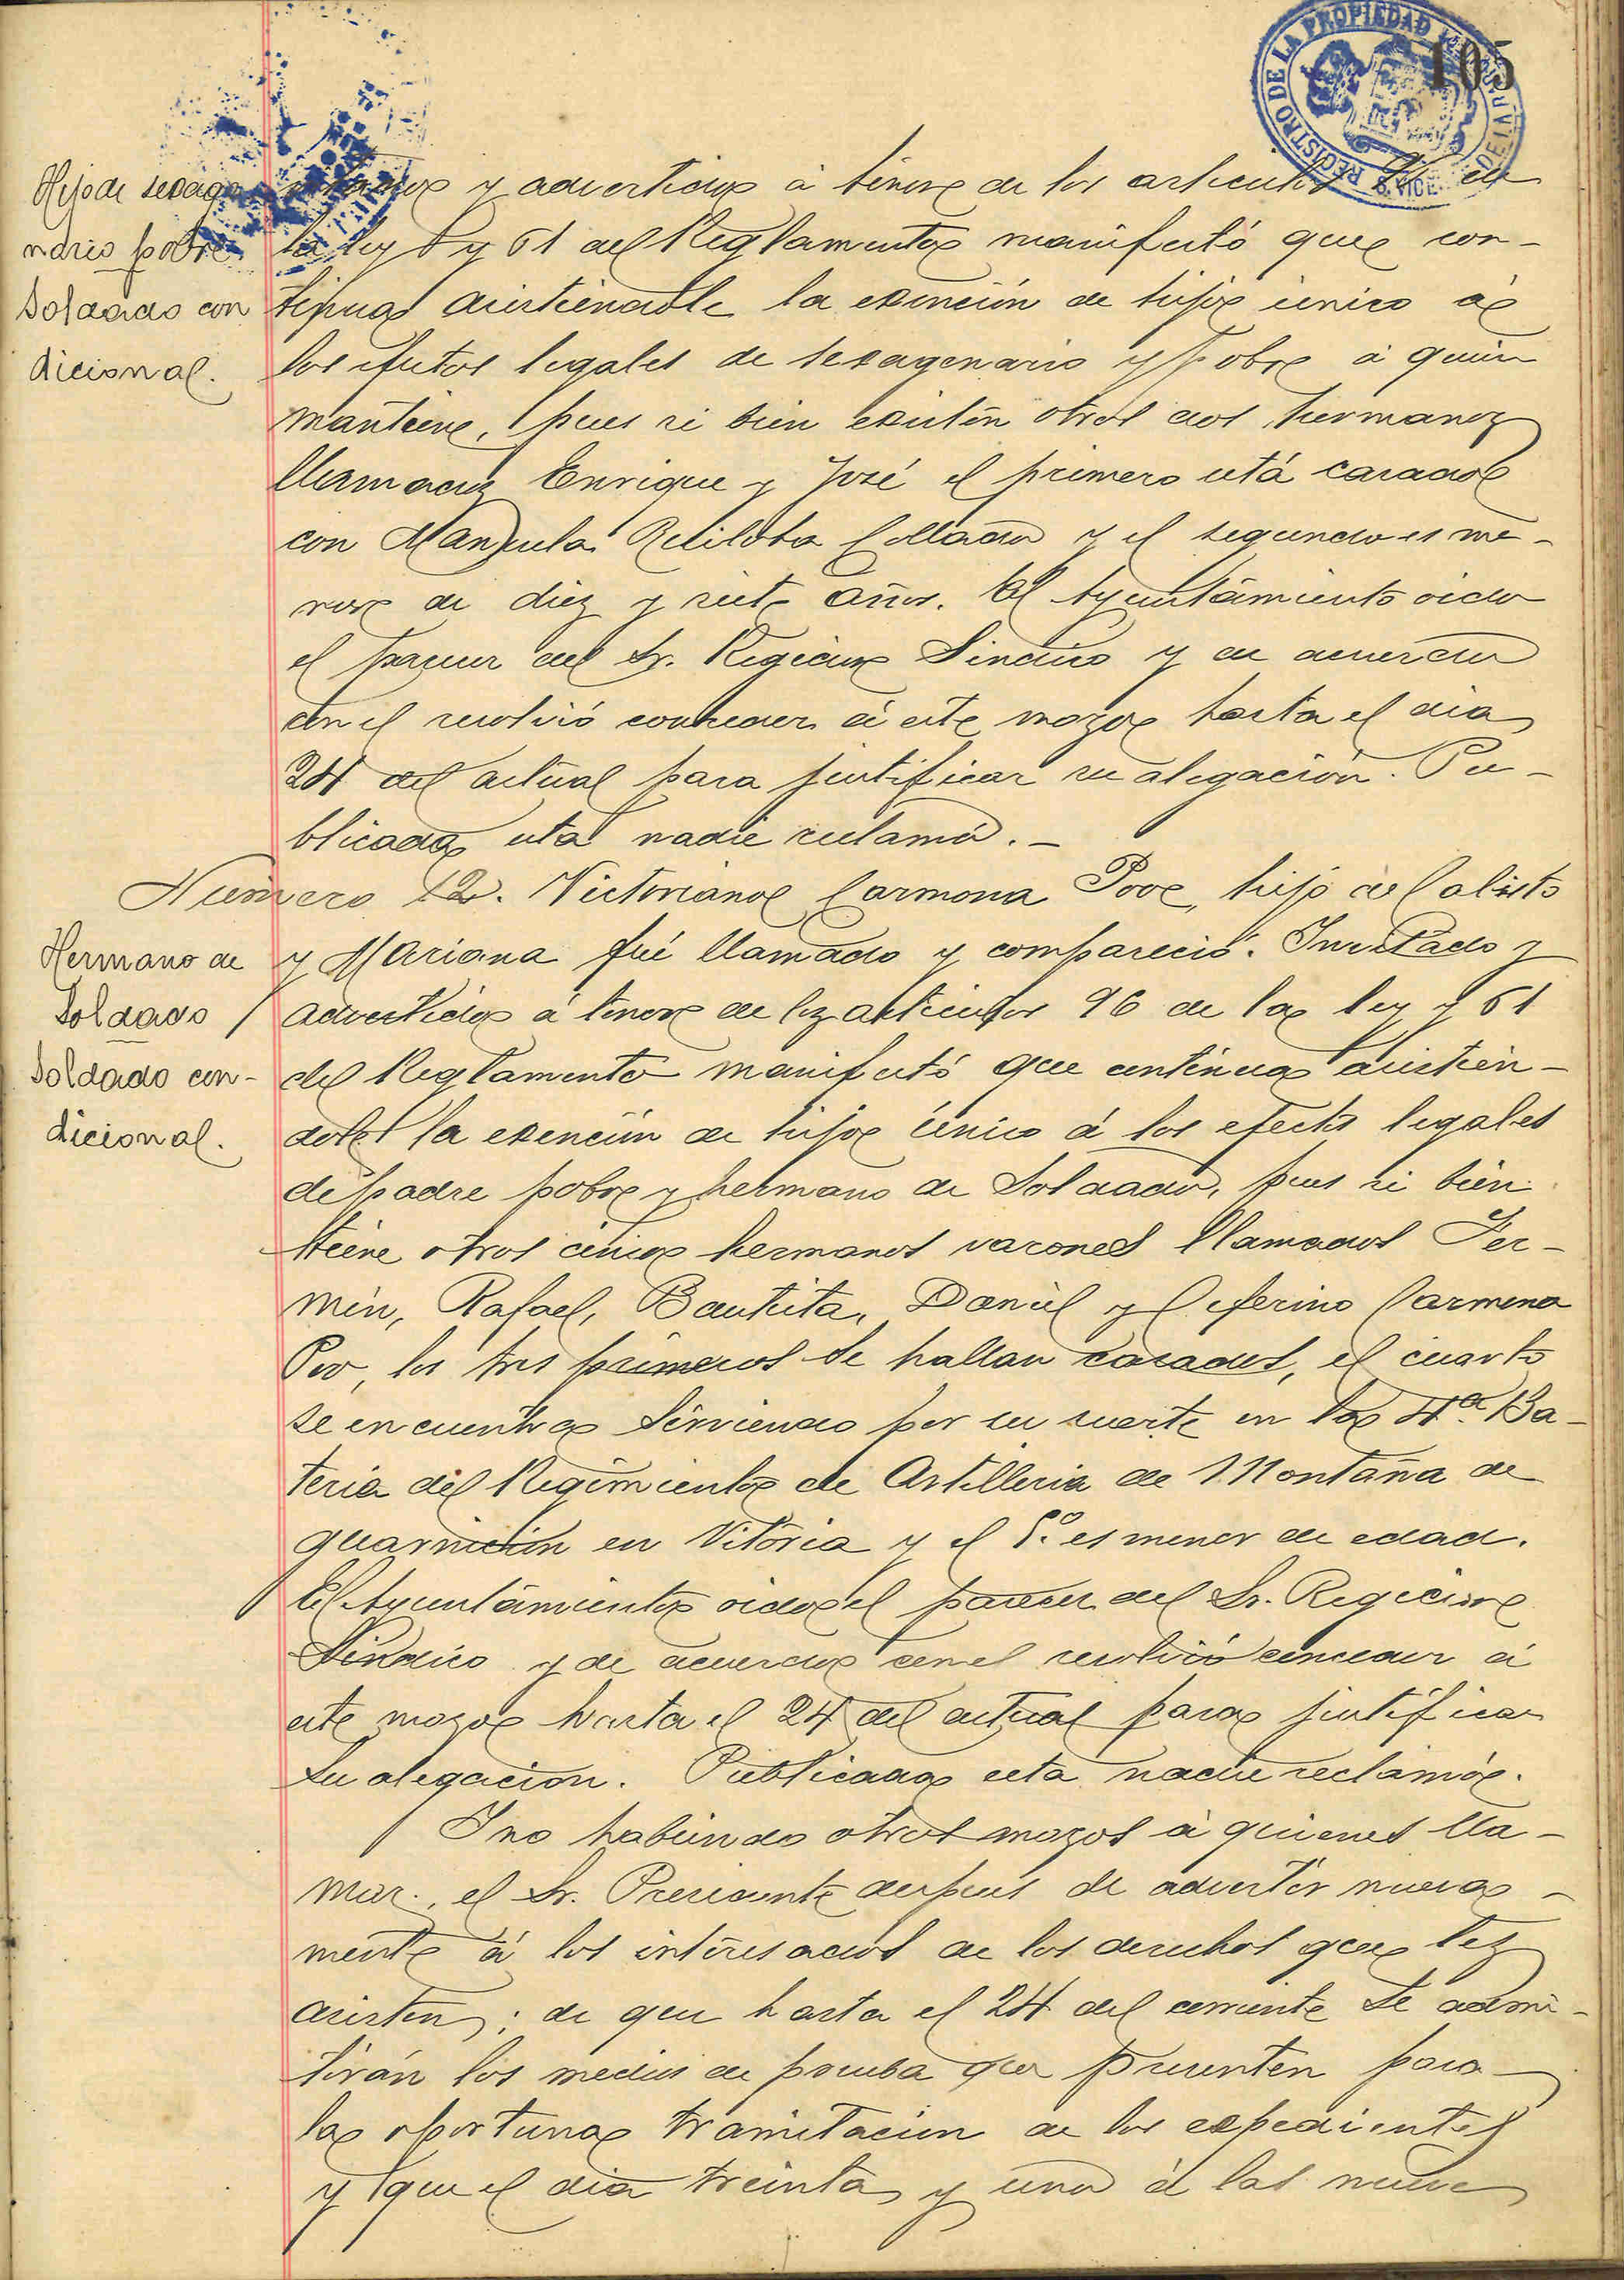 REGISTRO DE LA PROPIEDAD
105
Hijo de sexage
nario pobre
Soldado con
dicional.
y advertido á tenor de los articulos de
la ley y 61 del Reglamento manifestó que con-
tinua asistiendole la exención de hijo único á
los efectos legales de sexagenario y pobre á quien
mantiene, pues si bien existen otros dos hermanos
llamados Enrique y José el primero está casado
con Manuela Collado y el segundo es me-
nor de diez y siete años. El Ayuntamiento oido
el parecer del Sr. Regidor Sindico y de acuerdo
con el resolvió conceder á este mozo hasta el dia
24 del actual para justificar su alegación. Pu-
blicada esta nadie reclamó. -
Número 12. Victoriano Carmona Povo, hijo de Calisto
Hermano de
Soldado /
Soldado con-
dicional.
y Mariana fué llamado y compareció. Invitado y
advertido á tenor de los articulos 96 de la ley y 61
del Reglamento manifestó que continua asistien-
dole la exención de hijo único á los efectos legales
de padre pobre y hermano de Soldado, pues si bien
tiene otros cinco hermanos varones llamados Fer-
min, Rafael, Bautista, Daniel y Ceferino Carmona
Povo, los tres primeros se hallan casados, el cuarto
se encuentra sirviendo por su suerte en la 4ª. Ba-
teria del Regimiento de Artilleria de Montaña de
guarnición en Vitoria y el 5.º es menor de edad.
El Ayuntamiento oido el parecer del Sr. Regidor
Sindico y de acuerdo con el resolvió conceder á
este mozo hasta el 24 del actual para justificar
su alegacion. Publicada esta nadie reclamó.
Y no habiendo otros mozos á quienes lla-
mar, el Sr. Presidente despues de advertir nueva-
mente á los interesados de los derechos que les
asisten; de que hasta el 24 del corriente se admi-
tirán los medios de prueba que presenten para
la oportuna tramitacion de los expedientes
y que el dia treinta y uno á las nueve